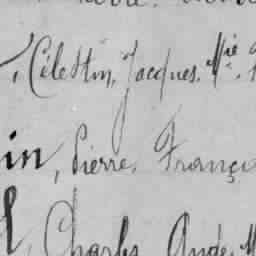 , Célestin, Jacques, Mie
in, Pierre, Françi
l, Charles, Andé, M